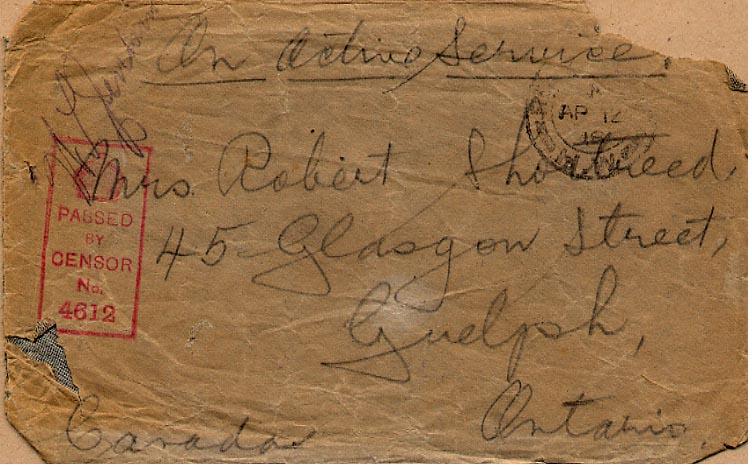 On Active Service.
AP 12
PASSED
BY
CENSOR
No.
4612
Mrs. Robert Shortreed,
45 Glasgow Street,
Guelph,
Ontario.
Canada